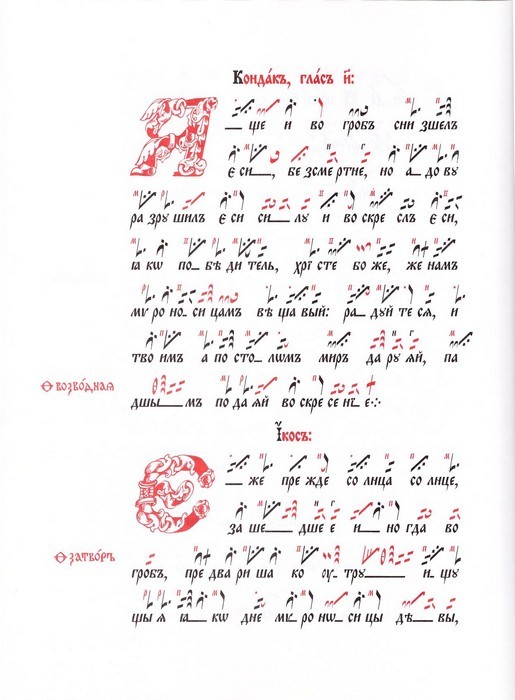 Конда́къ, гла́съ и҃:
А __ ще и во гробъ сни зшелъ
є си__, бе зсме ртне, но а_ до ву
ра зру шилъ є си си__ лу и во скре_ слъ є си,
ꙗ кѡ по_ бѣ ди тель, хрї сте бо же, же намъ
мѵ ро но_ си цамъ вѣ ща вый: ра_ дуй те сѧ, и
тво имъ а по сто_ лѡмъ миръ да ру ѧй, па
Ѳ возво́днаѧ
дшы__ мъ по да ѧй во скре се нї_ е
І҆́косъ:
Є __ же пре жде со лнца со лнце,
за ше__ дше е и__ но гда во
Ѳ затво́ръ
гробъ, пре два ри ша ко ѹ_ тру____ и_ щу
щы ѧ ꙗ__ кѡ дне мѵ_ ро нѡ_ си цы дѣ__ вы,